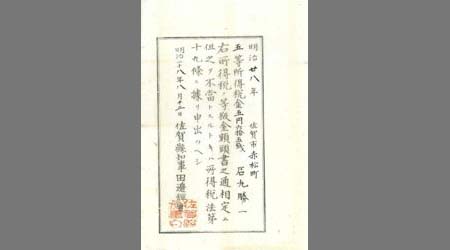 明治廿八年
佐賀市赤松町
五等所得税金五円六拾五銭
石丸勝一
右所得税ノ等級金額頭書之通相定ム
但之ヲ不當トスルトキハ所得税法第
十九條ニ據リ申出ツヘシ
明治二十八年八月十五日 佐賀縣知事田邊輝實